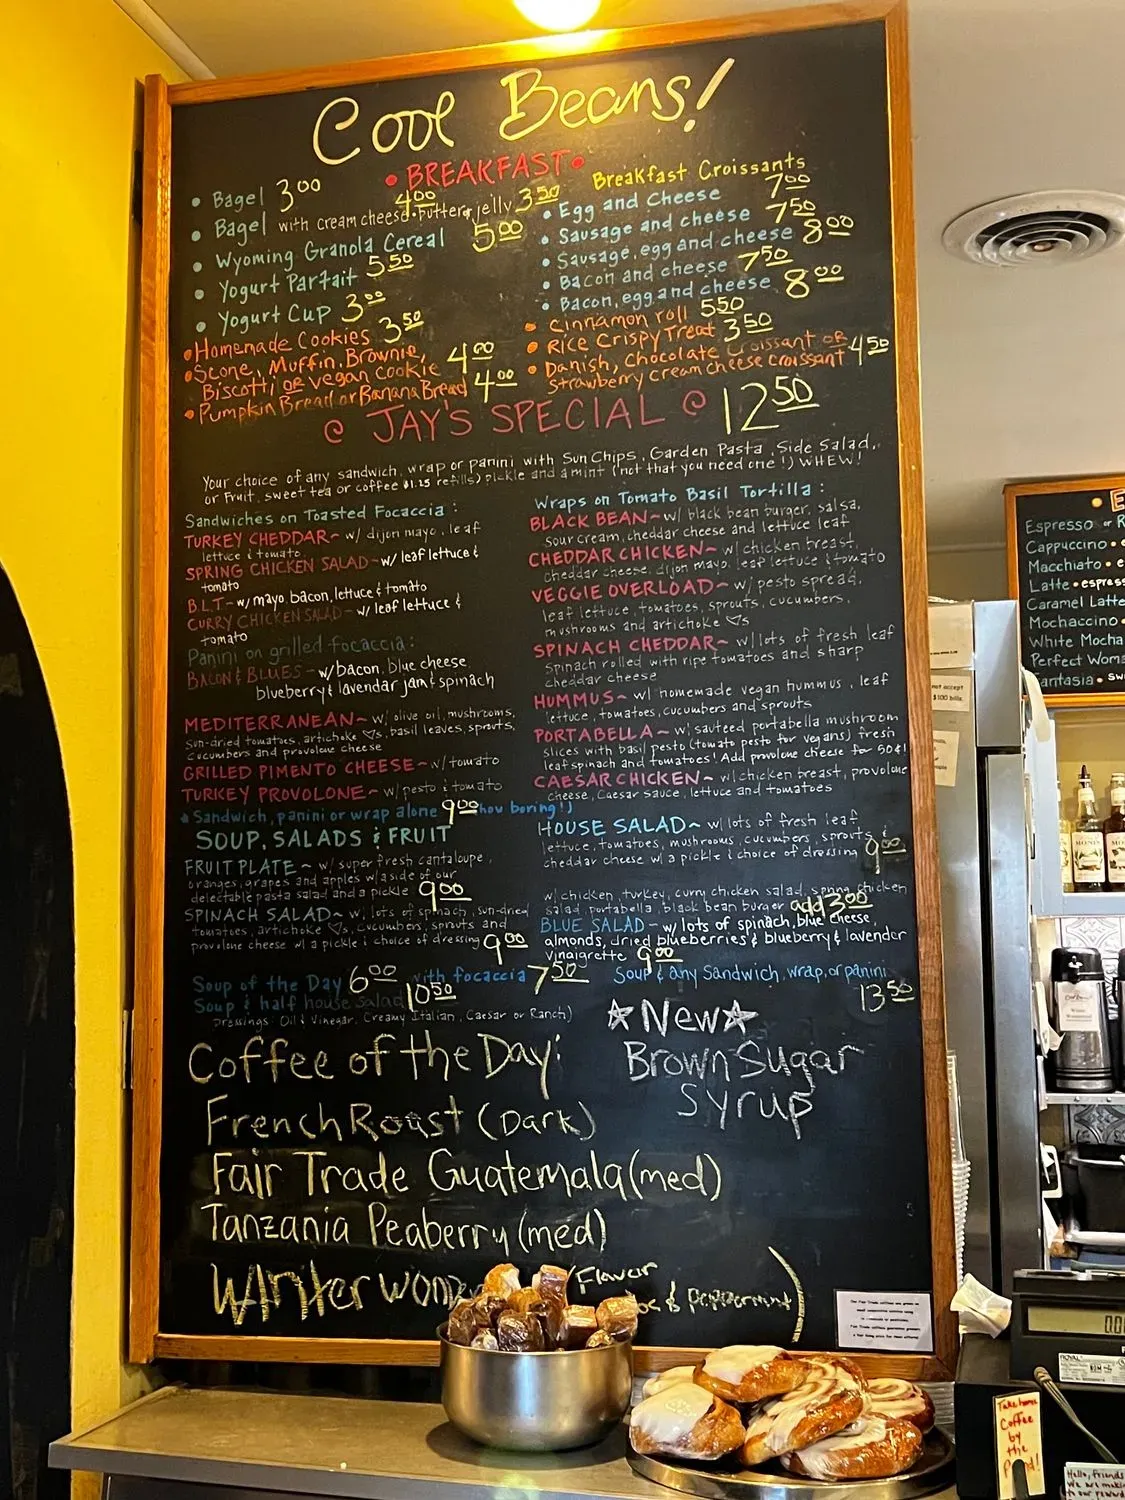 Cool Beans!
• BREAKFAST •
• Bagel 3.00
• Bagel with cream cheese 4.00 • butter & jelly 3.50
• Wyoming Granola Cereal 5.00
• Yogurt Parfait 5.50
• Yogurt Cup 3.00
• Homemade Cookies 3.50
• Scone, Muffin, Brownie,
Biscotti or vegan cookie 4.00
• Pumpkin Bread or Banana Bread 4.00
Breakfast Croissants
• Egg and Cheese 7.00
• Sausage and cheese 7.50
• Sausage, egg and cheese 8.00
• Bacon and cheese 7.50
• Bacon, egg and cheese 8.00
• Cinnamon roll 5.50
• Rice Crispy Treat 3.50
• Danish, Chocolate Croissant or
strawberry cream cheese croissant 4.50
@ JAY'S SPECIAL @ 12.50
Your choice of any sandwich, wrap or panini with Sun Chips, Garden Pasta, Side Salad,
or Fruit, sweet tea or coffee $1.25 refills) pickle and a mint (not that you need one!) WHEW!
Sandwiches on Toasted Focaccia:
TURKEY CHEDDAR~ w/ dijon mayo, leaf
lettuce & tomato
SPRING CHICKEN SALAD~ w/ leaf lettuce &
tomato
B.L.T~ w/ mayo, bacon, lettuce & tomato
CURRY CHICKEN SALAD~ w/ leaf lettuce &
tomato
Panini on grilled focaccia:
BACON & BLUES~ w/ bacon, blue cheese
blueberry & lavendar jam & spinach
MEDITERRANEAN~ w/ olive oil, mushrooms,
sun-dried tomatoes, artichoke ♡s, basil leaves, sprouts,
cucumbers and provolone cheese
GRILLED PIMENTO CHEESE~ w/ tomato
TURKEY PROVOLONE~ w/ pesto & tomato
* Sandwich, panini or wrap alone 9.00 (how boring!)
Wraps on Tomato Basil Tortilla:
BLACK BEAN~ w/ black bean burger, salsa,
sour cream, cheddar cheese and lettuce leaf
CHEDDAR CHICKEN~ w/ chicken breast,
cheddar cheese, dijon mayo, leaf lettuce & tomato
VEGGIE OVERLOAD~ w/ pesto spread,
leaf lettuce, tomatoes, sprouts, cucumbers,
mushrooms and artichoke ♡s
SPINACH CHEDDAR~ w/ lots of fresh leaf
spinach rolled with ripe tomatoes and sharp
cheddar cheese
HUMMUS~ w/ homemade vegan hummus, leaf
lettuce, tomatoes, cucumbers and sprouts
PORTABELLA~ w/ sauteed portabella mushroom
slices with basil pesto (tomato pesto for vegans) fresh
leaf spinach and tomatoes! Add provolone cheese for 50¢!
CAESAR CHICKEN~ w/ chicken breast, provolone
cheese, Caesar sauce, lettuce and tomatoes
SOUP, SALADS & FRUIT
FRUIT PLATE~ w/ super fresh cantaloupe,
oranges, grapes and apples w/ a side of our
delectable pasta salad and a pickle 9.00
SPINACH SALAD~ w/ lots of spinach, sun-dried
tomatoes, artichoke ♡s, cucumbers, sprouts and
provolone cheese w/ a pickle & choice of dressing 9.00
HOUSE SALAD~ w/ lots of fresh leaf
lettuce, tomatoes, mushrooms, cucumbers, sprouts &
cheddar cheese w/ a pickle & choice of dressing 9.00
w/ chicken, turkey, curry chicken salad, spring chicken
salad, portabella, black bean burger add 3.00
BLUE SALAD~ w/ lots of spinach, blue cheese,
almonds, dried blueberries & blueberry & lavender
vinaigrette 9.00
Soup of the Day 6.00 with focaccia 7.50
Soup & half house salad 10.50
Soup & any Sandwich, wrap, or panini
13.50
Dressings: Oil & Vinegar, Creamy Italian, Caesar or Ranch)
Coffee of the Day:
French Roast (Dark)
Fair Trade Guatemala (med)
Tanzania Peaberry (med)
Winter won
(Flavor
& peppermint)
☆New☆
Brown Sugar
Syrup
Espresso or
Cappuccino •
Macchiato •
Latte • espress
Caramel Latte
Mochaccino •
White Mocha
Perfect Woma
Fantasia •
not accept
$100 bills.
ROYAL
Take home
Coffee
by
the
Pound!
Hello, friends
We are makin